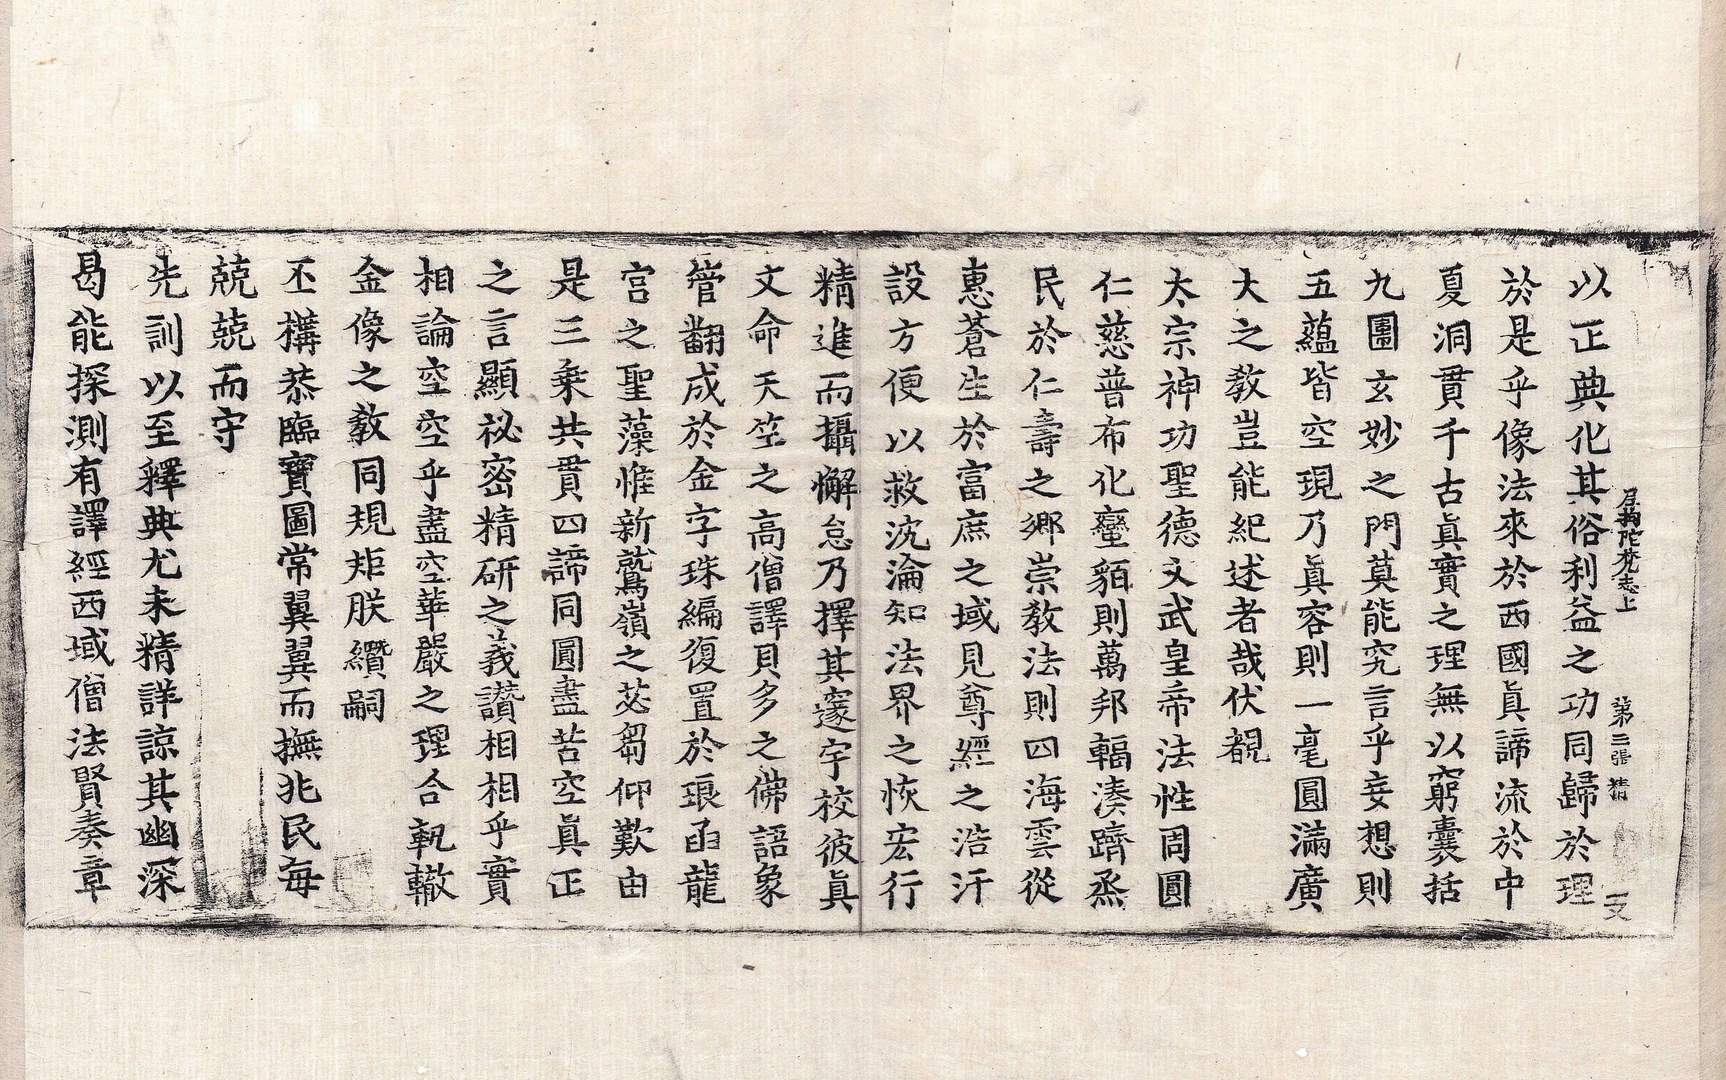 尼拘陀梵志上　第二張　精
以正典化其俗利益之功同歸於理
於是乎像法來於西國眞諦流於中
夏洞貫千古眞實之理無以窮囊括
九圍玄妙之門莫能究言乎妄想則
五蘊皆空現乃眞容則一毫圓滿廣
大之教豈能紀述者哉伏覩
太宗神功聖德文武皇帝法性周圓
仁慈普布化蠻貊則萬邦輻湊躋烝
民於仁壽之鄉崇教法則四海雲從
惠蒼生於富庶之域見尊經之浩汗
設方便以救沈淪知法界之恢宏行
精進而攝懈怠乃擇其邃宇校彼眞
文命天竺之高僧譯貝多之佛語象
管翻成於金字珠編復置於琅函龍
宮之聖藻惟新鷲嶺之苾芻仰歎由
是三乗共貫四諦同圓盡苦空眞正
之言顯祕密精研之義讚相相乎實
相論空空乎盡空華嚴之理合軌轍
金像之教同規矩朕纘嗣
丕構恭臨寶圖常翼翼而撫兆民每
兢兢而守
先訓以至釋典尤未精詳諒其幽深
曷能探測有譯經西域僧法賢奏章